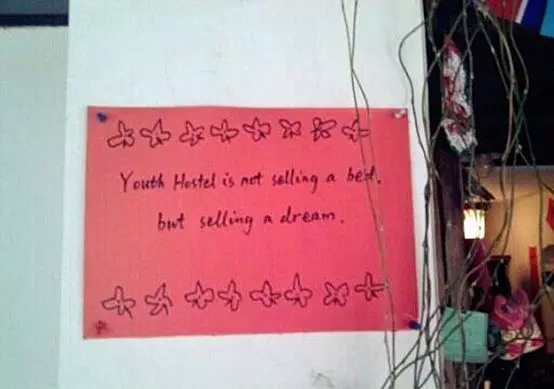 Youth Hostel is not selling a bed,
but selling a dream.